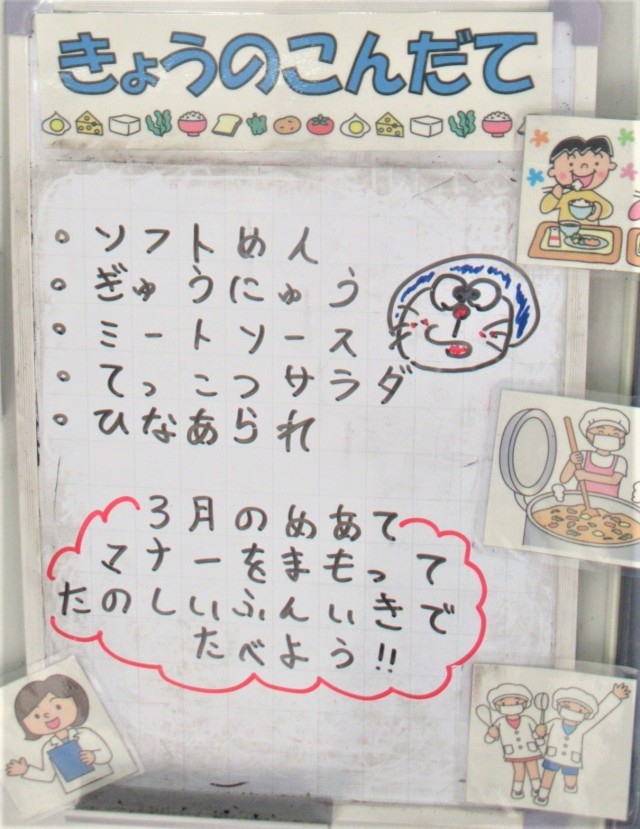 きょうのこんだて
・ソフトめん
・ぎゅうにゅう
・ミートソース
・てっこつサラダ
・ひなあられ
3月のめあて
マナーをまもって
たのしいふんいきで
たべよう!!